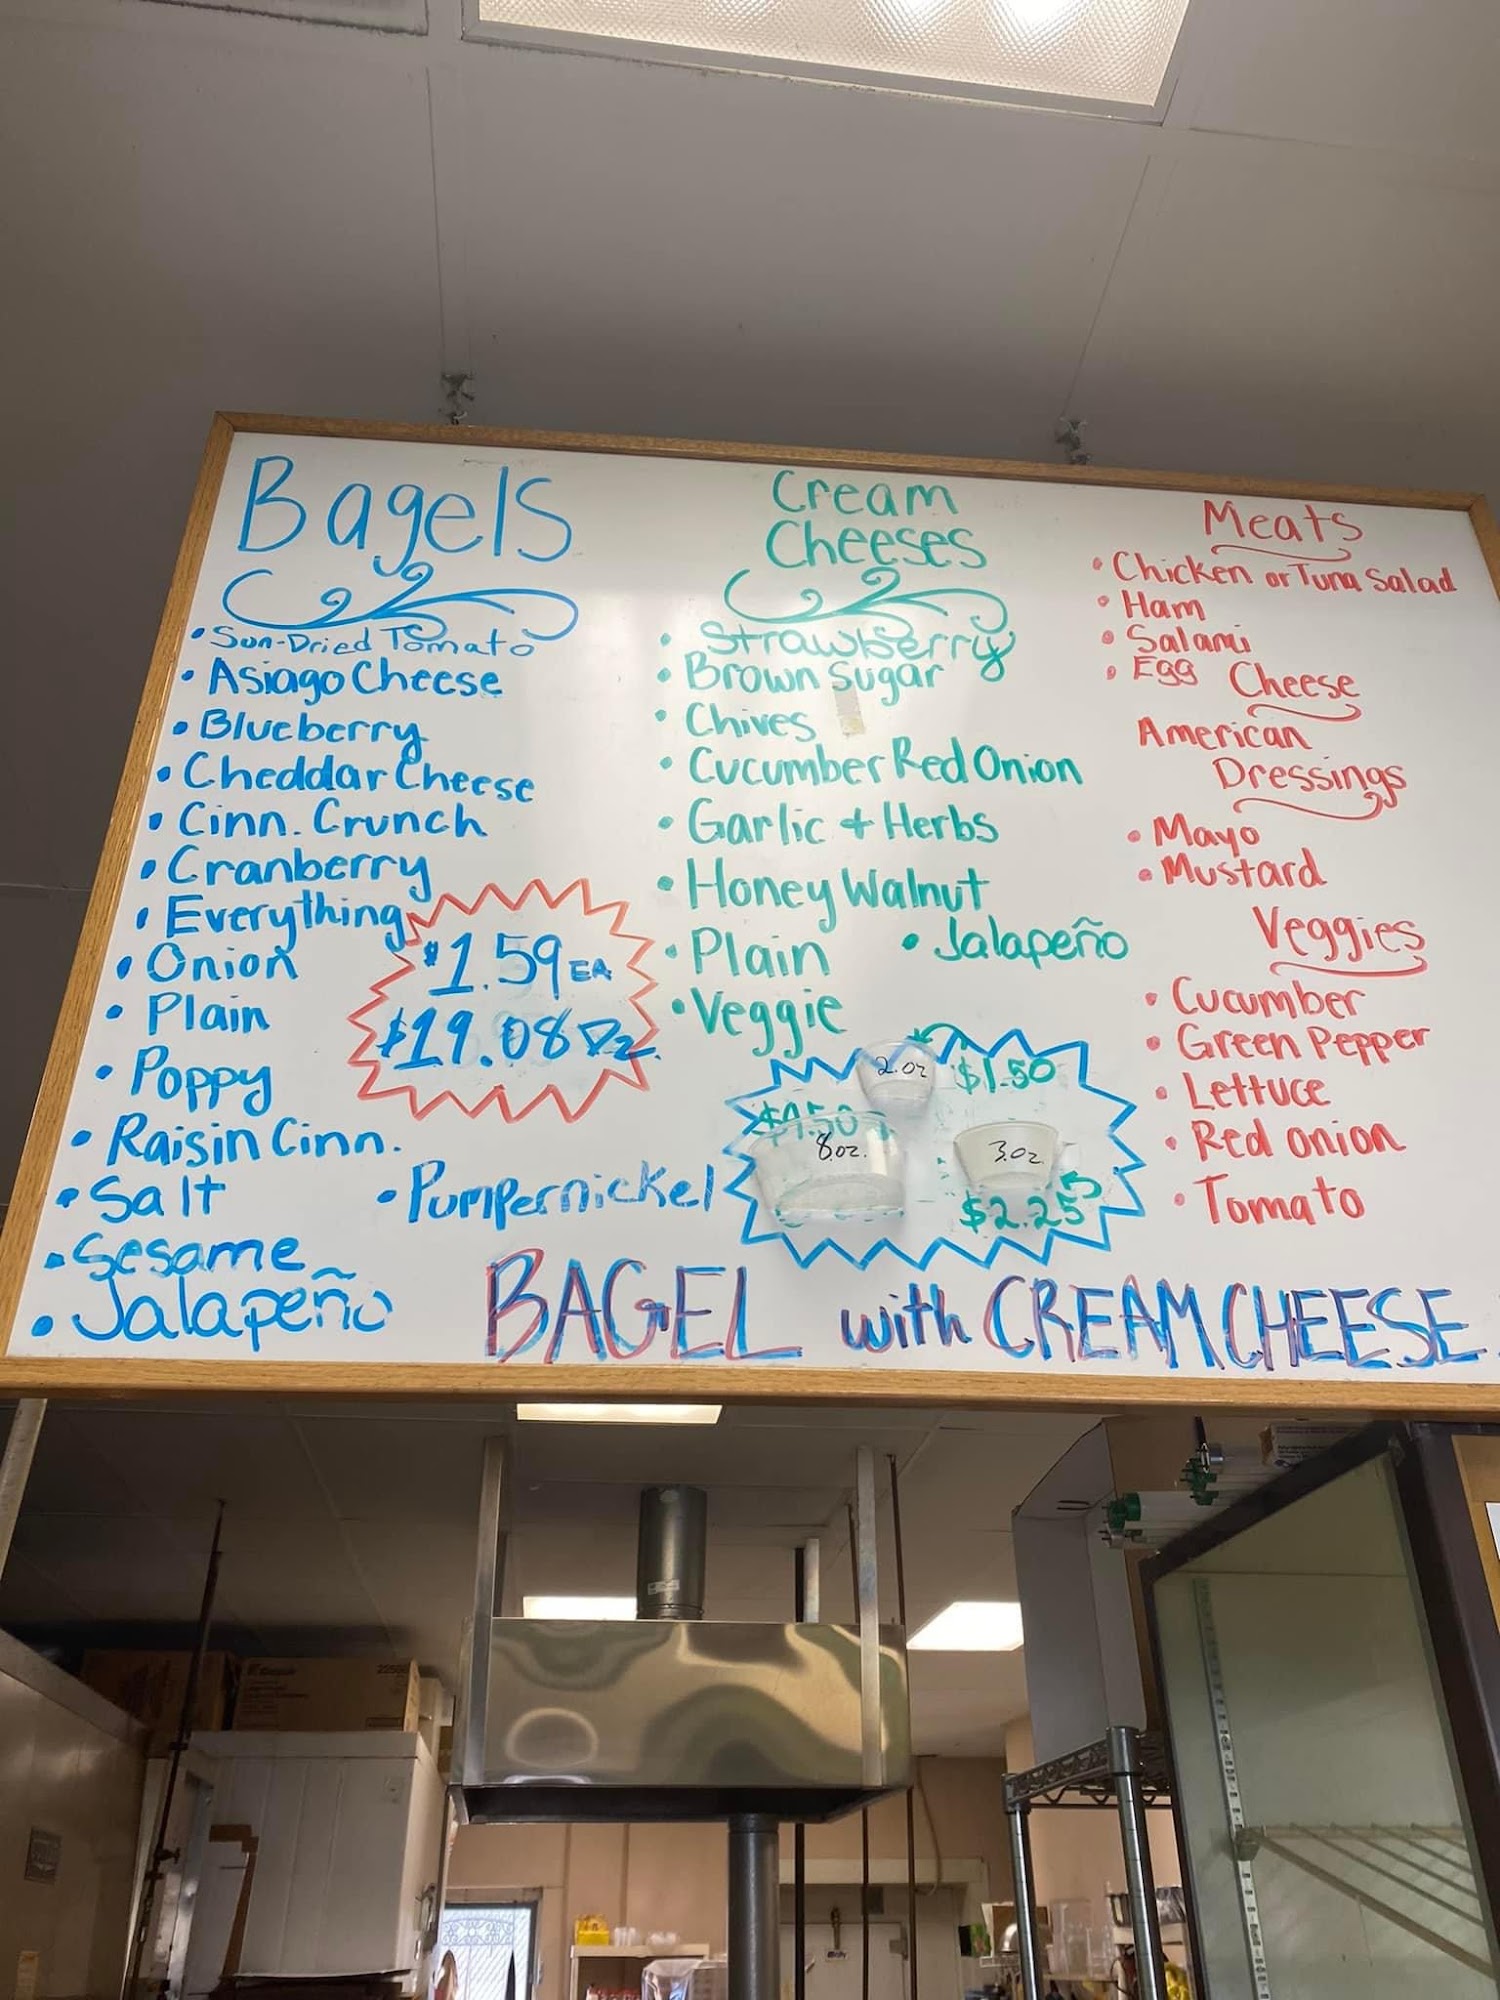 Bagels
• Sun-Dried Tomato
• Asiago Cheese
• Blueberry
• Cheddar Cheese
• Cinn. Crunch
• Cranberry
• Everything
• Onion
• Plain
• Poppy
• Raisin Cinn.
• Salt
• Pumpernickel
• Sesame
• Jalapeño
$1.59 EA
$19.08 Dz.
Cream
Cheeses
• Strawberry
• Brown Sugar
• Chives
• Cucumber Red Onion
• Garlic + Herbs
• Honey Walnut
• Plain
• Jalapeño
• Veggie
2.oz
$1.50
$4.50
8.oz.
3.oz.
$2.25
Meats
• Chicken or Tuna Salad
• Ham
• Salami
• Egg
Cheese
American
Dressings
• Mayo
• Mustard
Veggies
• Cucumber
• Green Pepper
• Lettuce
• Red onion
• Tomato
BAGEL with CREAM CHEESE